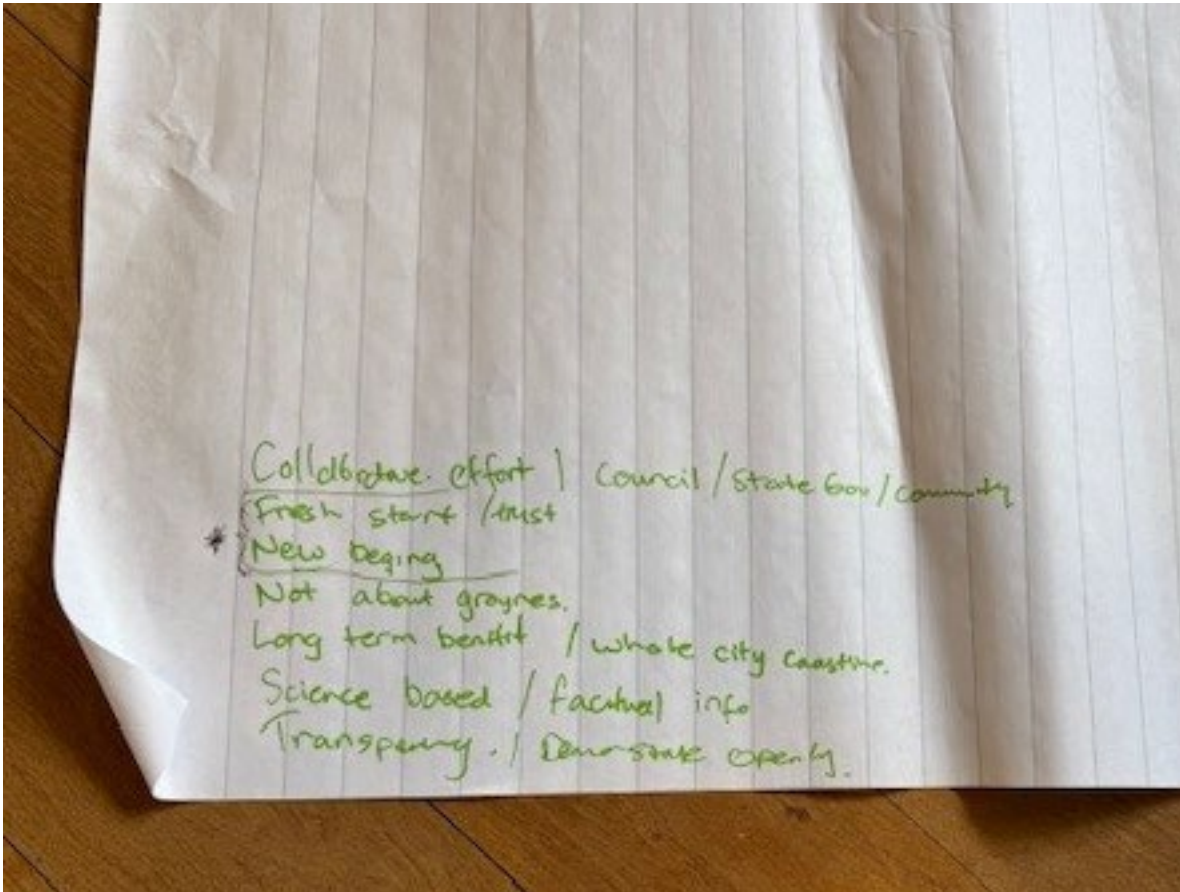 Collabrotave. effort | Council / State Gov / community
Fresh start / trust
* New beging
Not about groynes.
Long term benifit / whole city coastline.
Science based / factual info
Transpency. / Demonstrate openly.